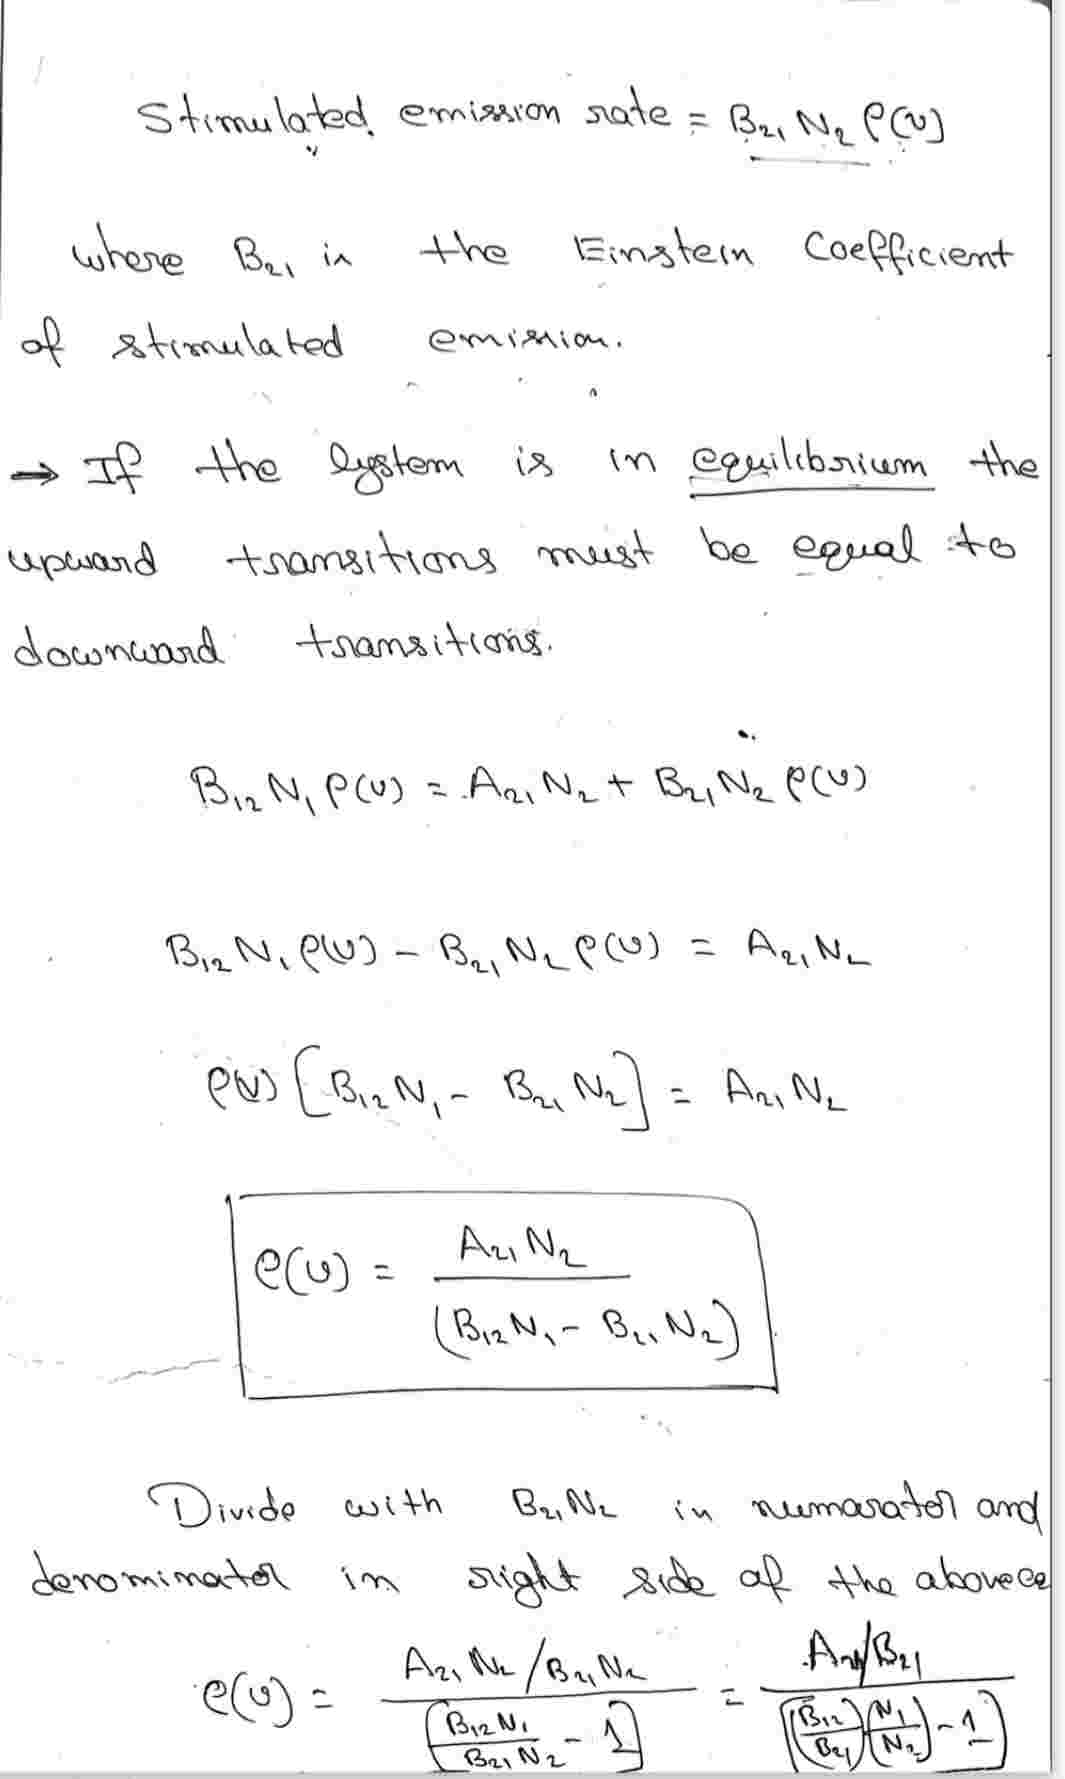 Stimulated emission rate = B₂₁ N₂ ρ(ν)
where B₂₁ is the Einstein Coefficient
of stimulated emission.
→ If the system is in equilibrium the
upward transitions must be equal to
downward transitions.
B₁₂ N₁ ρ(ν) = A₂₁ N₂ + B₂₁ N₂ ρ(ν)
B₁₂ N₁ ρ(ν) - B₂₁ N₂ ρ(ν) = A₂₁ N₂
ρ(ν) [B₁₂ N₁ - B₂₁ N₂] = A₂₁ N₂
ρ(ν) = A₂₁ N₂ / (B₁₂ N₁ - B₂₁ N₂)
Divide with B₂₁ N₂ in numarator and
denominator in right side of the above
ρ(ν) = (A₂₁ N₂ / B₂₁ N₂) / [B₁₂ N₁ / B₂₁ N₂ - 1] = (A₂₁/B₂₁) / [(B₁₂/B₂₁)(N₁/N₂) - 1]